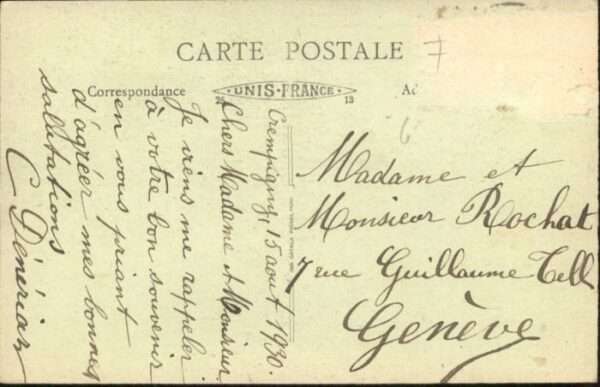 CARTE POSTALE
7
Correspondance
UNIS-FRANCE
13
Ad
6
Crempigny, 15 aout 1930.
Chers Madame et Monsieur
Je viens me rappeler
à votre bon souvenir
en vous priant
d'agréer mes bonnes
salutations
Madame et
Monsieur Rochat
7 rue Guillaume Tell
Genève